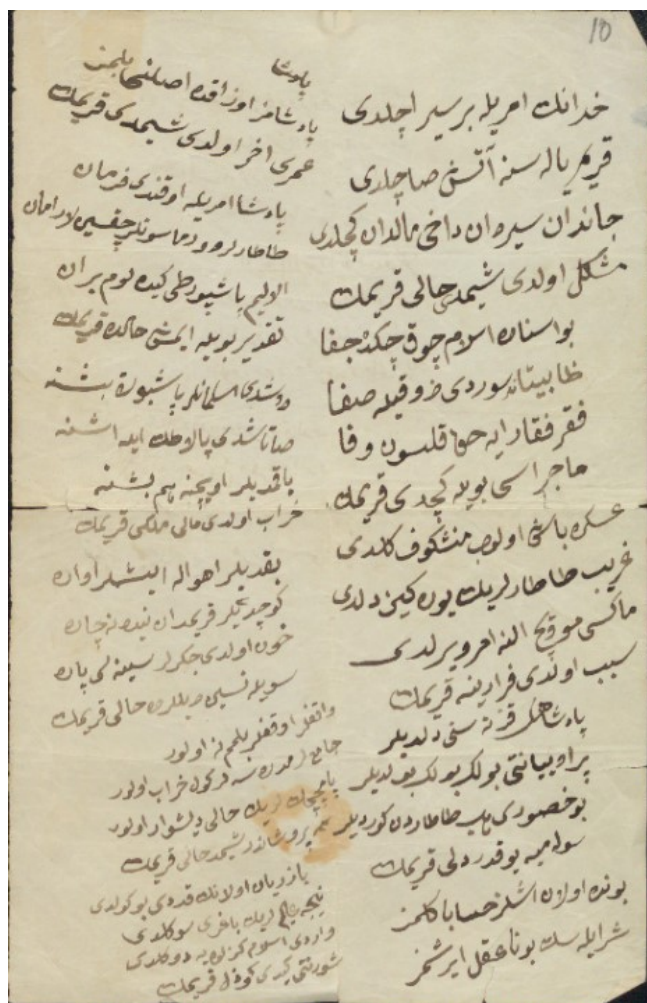 10
خدانك امريله بر سير اچلدى
قريم ياله سنه آتش صاچلدى
جاندان سيره ان داخى مالدان كچلدى
مشكل اولدى شيمدى حالى قريمك
بو اسناده اسلام چوق چكدى جفا
ضابيتانه سوردى ذوقيله صفا
فقر فقارايه حق قلسون وفا
ماجراسى بويله كچدى قريمك
عسكره باش اولوب منشكوف كلدى
غريب طاطارلريك يون كيز دلدى
ماكسيموويچ النه امر ويرلدى
سبب اولدى فرارينه قريمك
پادشاهك قزنه سنى دلديلر
پراوييانتى بولك بولك بولديلر
بو خصورى هپ طاطاردن كورديلر
سوله ميه يوقدر دلى قريمك
بونده اولان اشلر حسابا كلمز
شرايله سك بونا عقل ايرشمز
پادشا
پادشامز اوزاقده اصلنى بلمز
عمرى اخر اولدى شيمدى قريمك
پادشا امريله اوقندى فرمان
طاطارلر وورماسونلر چقسين لار امان
الاليم پاشپورطى كيده لوم بر ان
تقدير بويله ايمش حالده قريمك
دوشدى اسلمانلر پاشبورة بشنه
صاتاشدى پالاطك ايله اشنه
ياقديلر اوپچنه هم بشنه
خراب اولدى مالى ملكى قريمك
بقديلر اهواله ايشلر اوان
كوچديلر قريمدان نيده نه چاره
خون اولدى جكرلر سينه لى پاره
سويله نسين ديللرده حالى قريمك
واقفلر اوقفلر بلمم نه اولور
جامعلر مدرسه لر كول خراب اولور
حالى ديشوار اولور
شيمدى حالى قريمك
يازديان اولانك قدى بوكولدى
نيجه عالم لريك باغرى سوكلدى
واردى اسلام كزلويه دوكلدى
شورتى كيدى كوزل قريمك